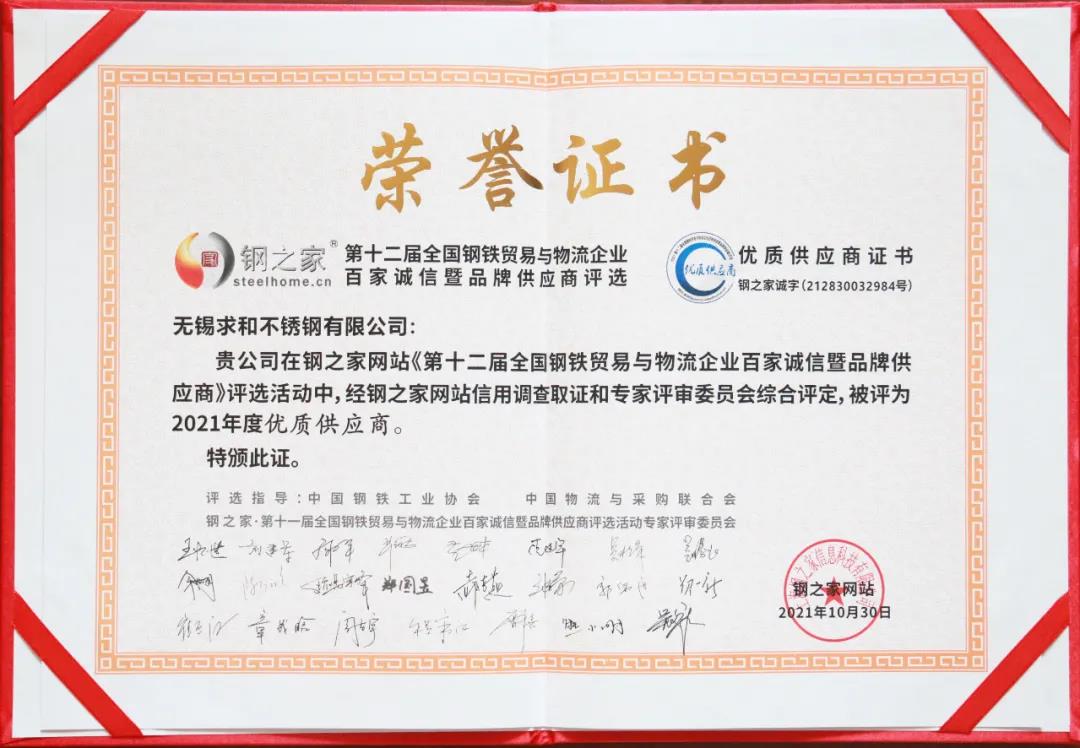 荣誉证书
钢之家®
steelhome.cn
第十二届全国钢铁贸易与物流企业
百家诚信暨品牌供应商评选
优质供应商
优质供应商证书
钢之家诚字(212830032984号)
无锡求和不锈钢有限公司:
贵公司在钢之家网站《第十二届全国钢铁贸易与物流企业百家诚信暨品牌供
应商》评选活动中,经钢之家网站信用调查取证和专家评审委员会综合评定,被评为
2021年度优质供应商。
特颁此证。
评选指导:中国钢铁工业协会 中国物流与采购联合会
钢之家·第十一届全国钢铁贸易与物流企业百家诚信暨品牌供应商评选活动专家评审委员会
钢之家网站
2021年10月30日